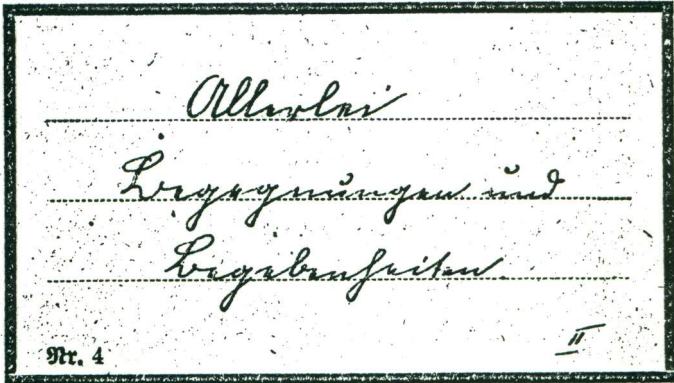 Allerlei
Begegnungen und
Begebenheiten
Nr. 4
II